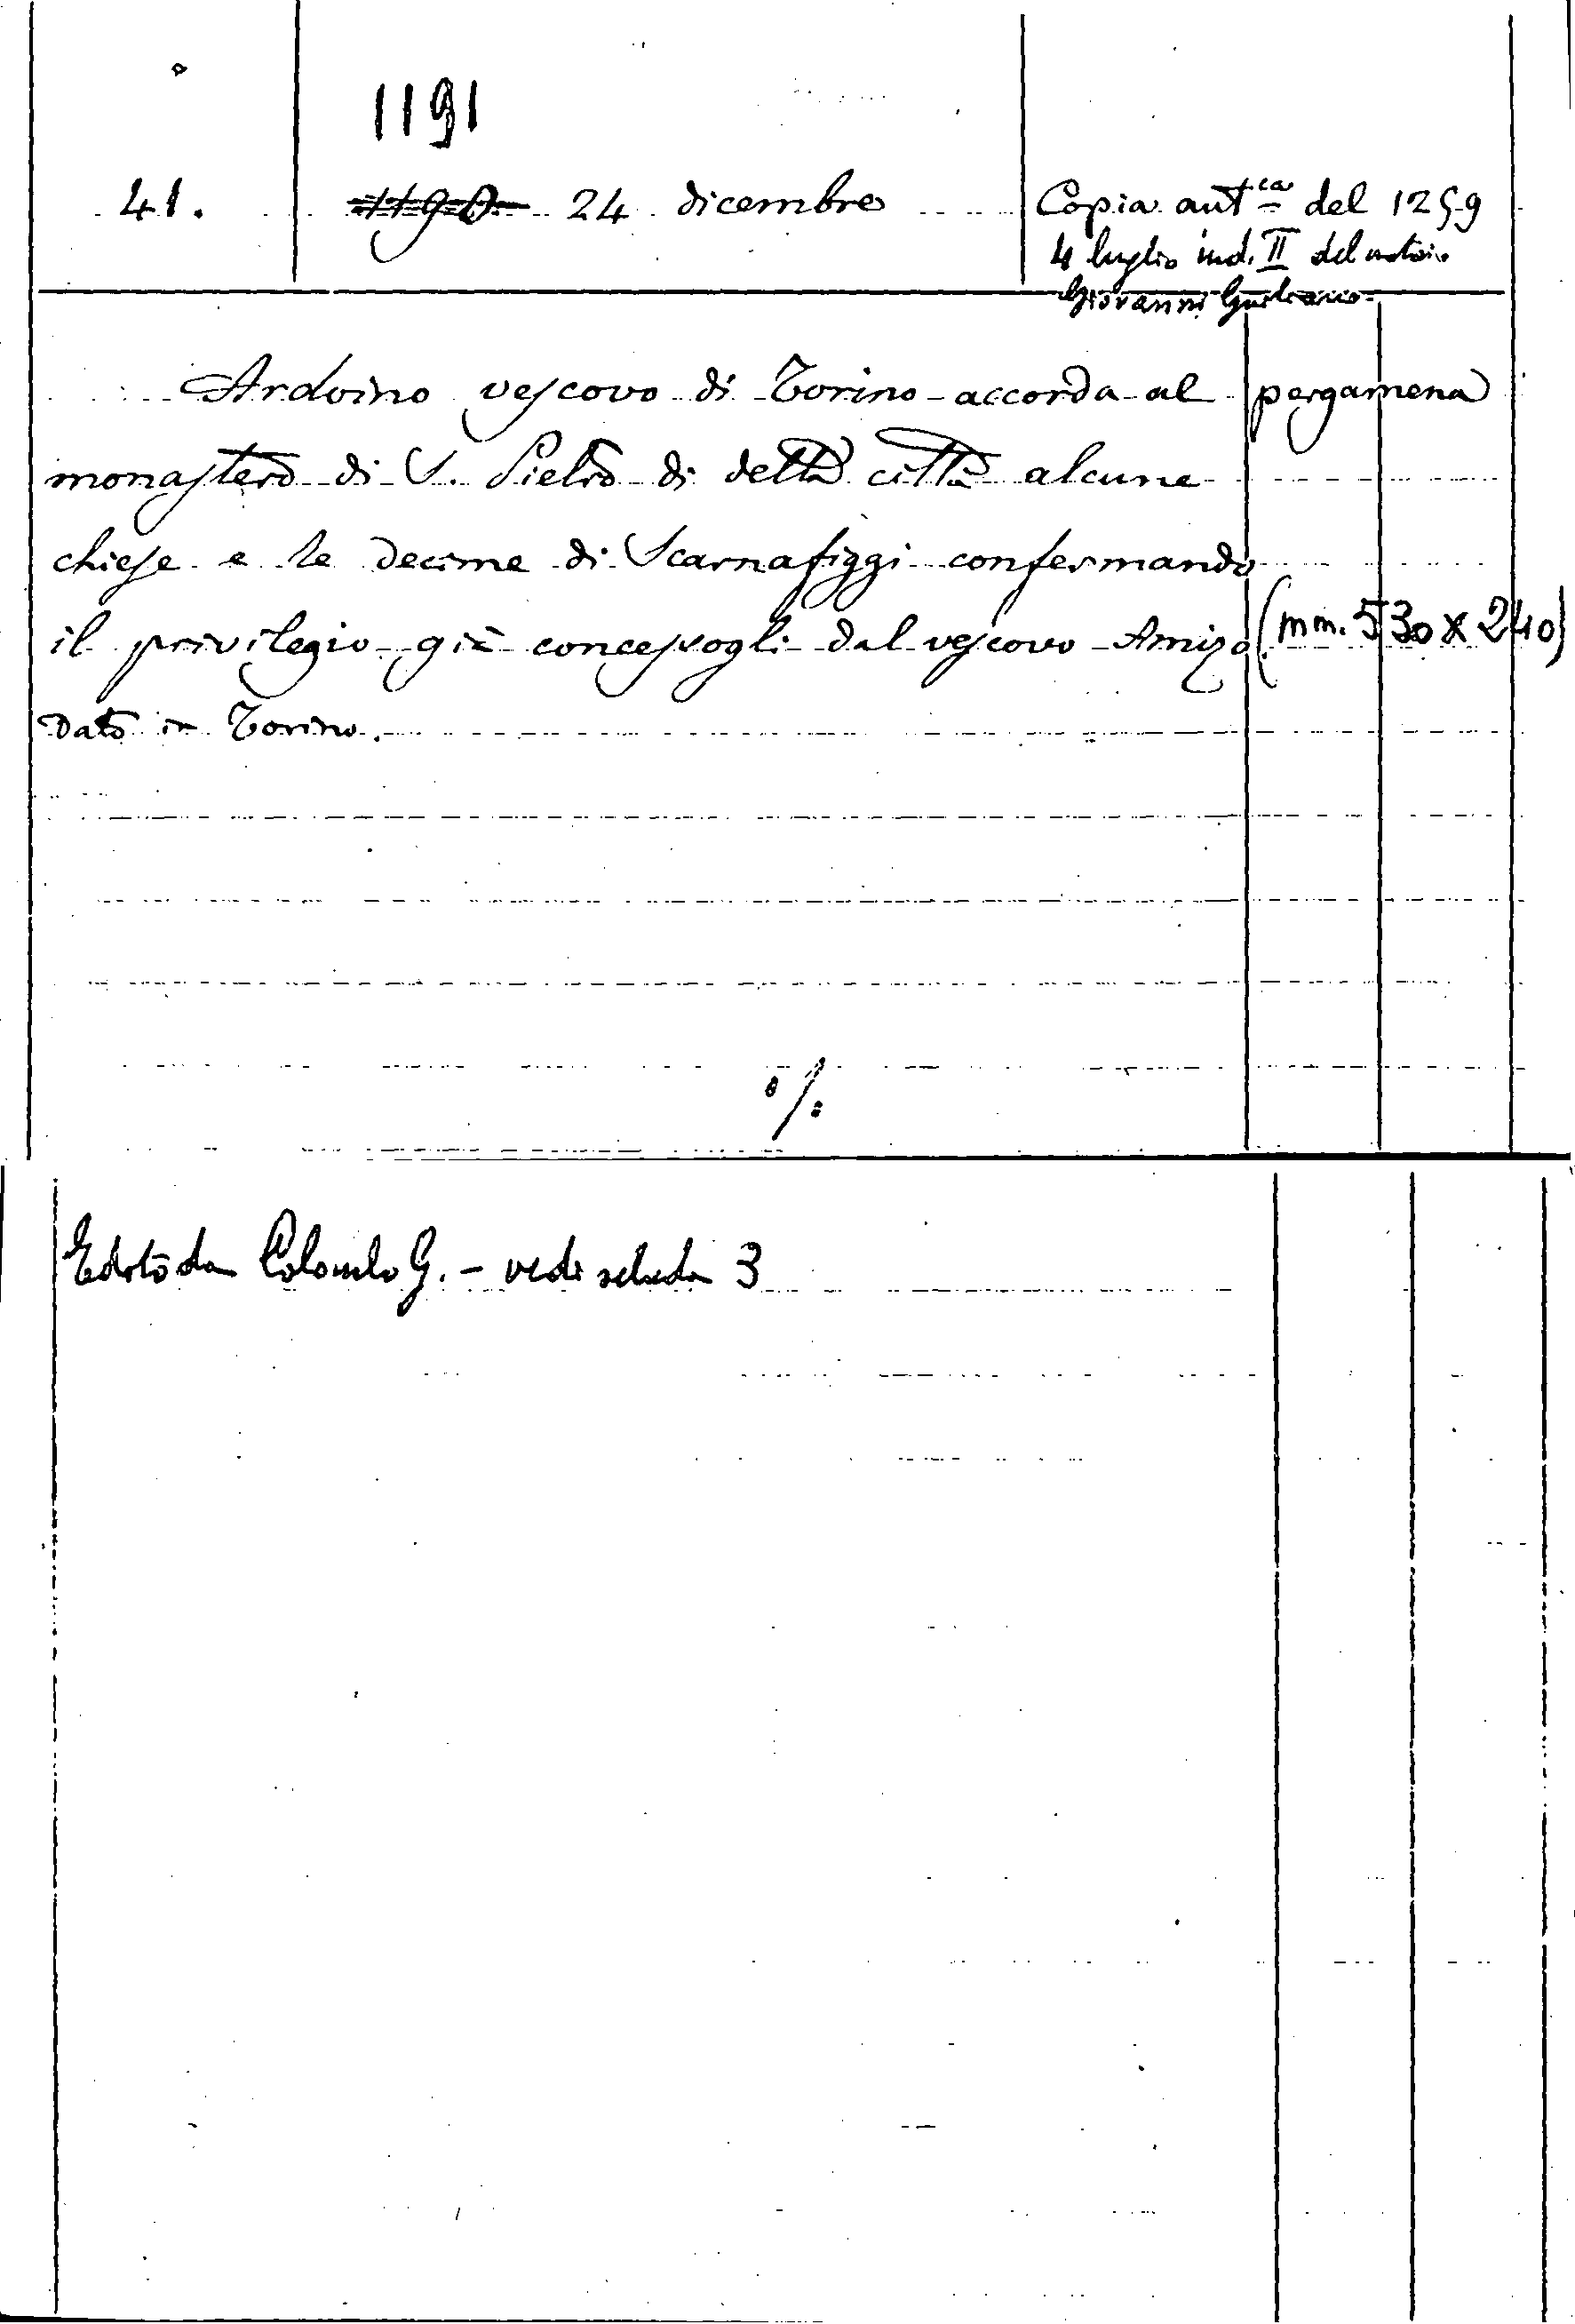 1191
41. 1190 24 dicembre Copia aut.ca del 1259
4 luglio ind. II del notaio
Giovanni
Ardoino vescovo di Torino accorda al pergamena
monastero di S. Pietro di detta città alcune
chiese e le decime di Scarnafiggi confermando
il privilegio già concessogli dal vescovo Amizo. (mm. 530 x 240)
Dato in Torino.
./.
Edito da Colombo G. - vedi scheda 3